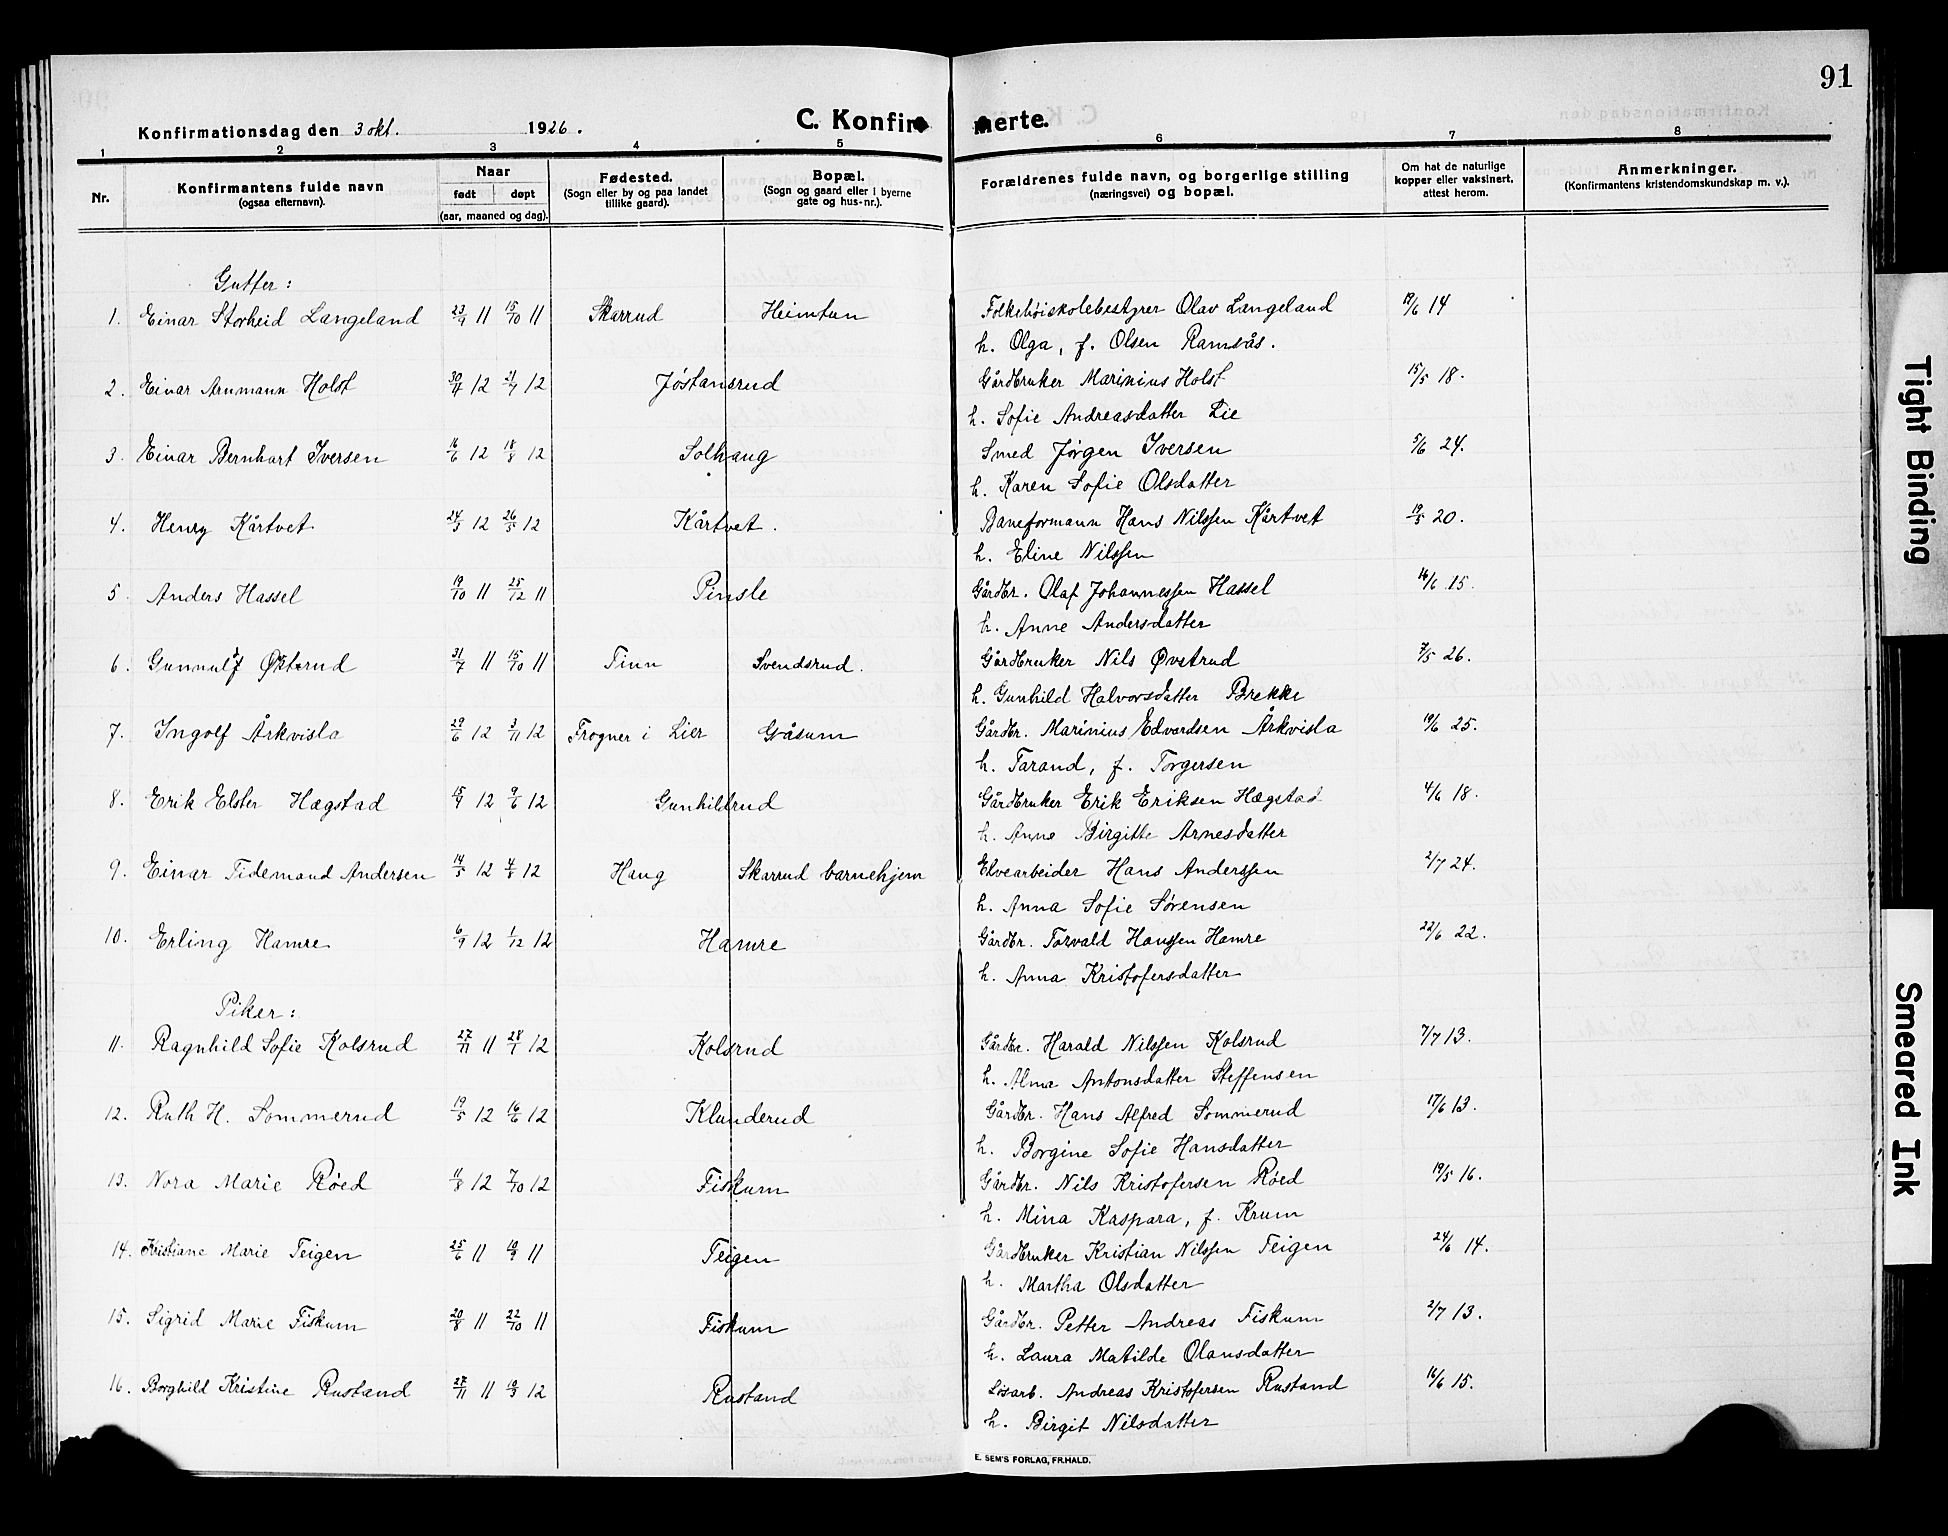 91
Konfirmationsdag den 3 okt. 1926.
C. Konfirmerte.
1 2 3 4 5 6 7 8
Nr.
Konfirmantens fulde navn
(ogsaa efternavn).
Naar
født døpt
(aar, maaned og dag).
Fødested.
(Sogn eller by og paa landet
tillike gaard).
Bopæl.
(Sogn og gaard eller i byerne
gate og hus-nr.).
Forældrenes fulde navn, og borgerlige stilling
(næringsvei) og bopæl.
Om hat de naturlige
kopper eller vaksinert,
attest herom.
Anmerkninger.
(Konfirmantens kristendomskundskap m. v.).
Gutter:
1. Einar Storheid Langeland 23/9 11 15/10 11 Skarrud Heimtun Folkehøiskolebestyrer Olav Langeland 19/6 14
h. Olga, f. Olsen Ramsås.
2. Einar Arnmann Holst 30/4 12 21/7 12 Jøstansrud Gårdbruker Marinius Holst 15/5 18.
h. Sofie Andreasdatter Lie
3. Einar Bernhart Iversen 16/6 12 18/8 12 Solhaug Smed Jørgen Iversen 5/6 24.
h. Karen Sofie Olsdatter
4. Henry Kårtvet 24/3 12 26/5 12 Kårtvet. Baneformann Hans Nilssen Kårtvet 19/5 20.
h. Eline Nilssen
5. Anders Hassel 19/10 11 25/12 11 Pinsle Gårdbr. Olaf Johannessen Hassel 16/6 15.
h. Anne Andersdatter
6. Gunnulf 31/7 11 15/10 11 Tinn Svendsrud. Gårdbruker Nils Øvstrud 7/5 26.
h. Gunhild Halvorsdatter Brekke
7. Ingolf Årkvisla 29/6 12 3/11 12 Frogner i Lier Gåsum Gårdbr. Marinius Edvardsen Årkvisla 19/6 25.
h. Tarand, f. Torgersen
8. Erik Elster Hægstad 15/4 12 9/6 12 Gunhildrud Gårdbruker Erik Eriksen Hægstad 4/6 18.
h. Anne Birgitte Arnesdatter
9. Einar Tidemand Andersen 14/5 12 4/8 12 Haug Skarrud barnehjem Elvearbeider Hans Anderssen 2/7 24.
h. Anna Sofie Sørensen
10. Erling Hamre 6/9 12 1/12 12 Hamre Gårdbr. Torvald Hanssen Hamre 22/6 22.
h. Anna Kristofersdatter
Piker:
11. Ragnhild Sofie Kolsrud 27/11 11 28/1 12 Kolsrud Gårdbr. Harald Nilssen Kolsrud 7/7 13.
h. Alma Antonsdatter Steffensen
12. Ruth H. Sommerud 19/5 12 16/6 12 Klunderud Gårdbr. Hans Alfred Sommerud 17/6 13.
h. Borgine Sofie Hansdatter
13. Nora Marie Røed 11/8 12 7/10 12 Fiskum Gårdbr. Nils Kristofersen Røed 19/5 16.
h. Mina Kaspara, f. Krum
14. Kristiane Marie Teigen 25/6 11 10/9 11 Teigen Gårdbruker Kristian Nilssen Teigen 24/6 14.
h. Martha Olsdatter
15. Sigrid Marie Fiskum 20/8 11 22/10 11 Fiskum Gårdbr. Petter Andreas Fiskum 2/7 13.
h. Laura Matilde Olausdatter
16. Borghild Kristine Rustand 27/11 11 10/3 12 Rustand Løsarb. Andreas Kristofersen Rustand 16/6 15.
h. Birgit Nilsdatter
E. SEM'S FORLAG, FR.HALD.
Tight Binding
Smeared Ink